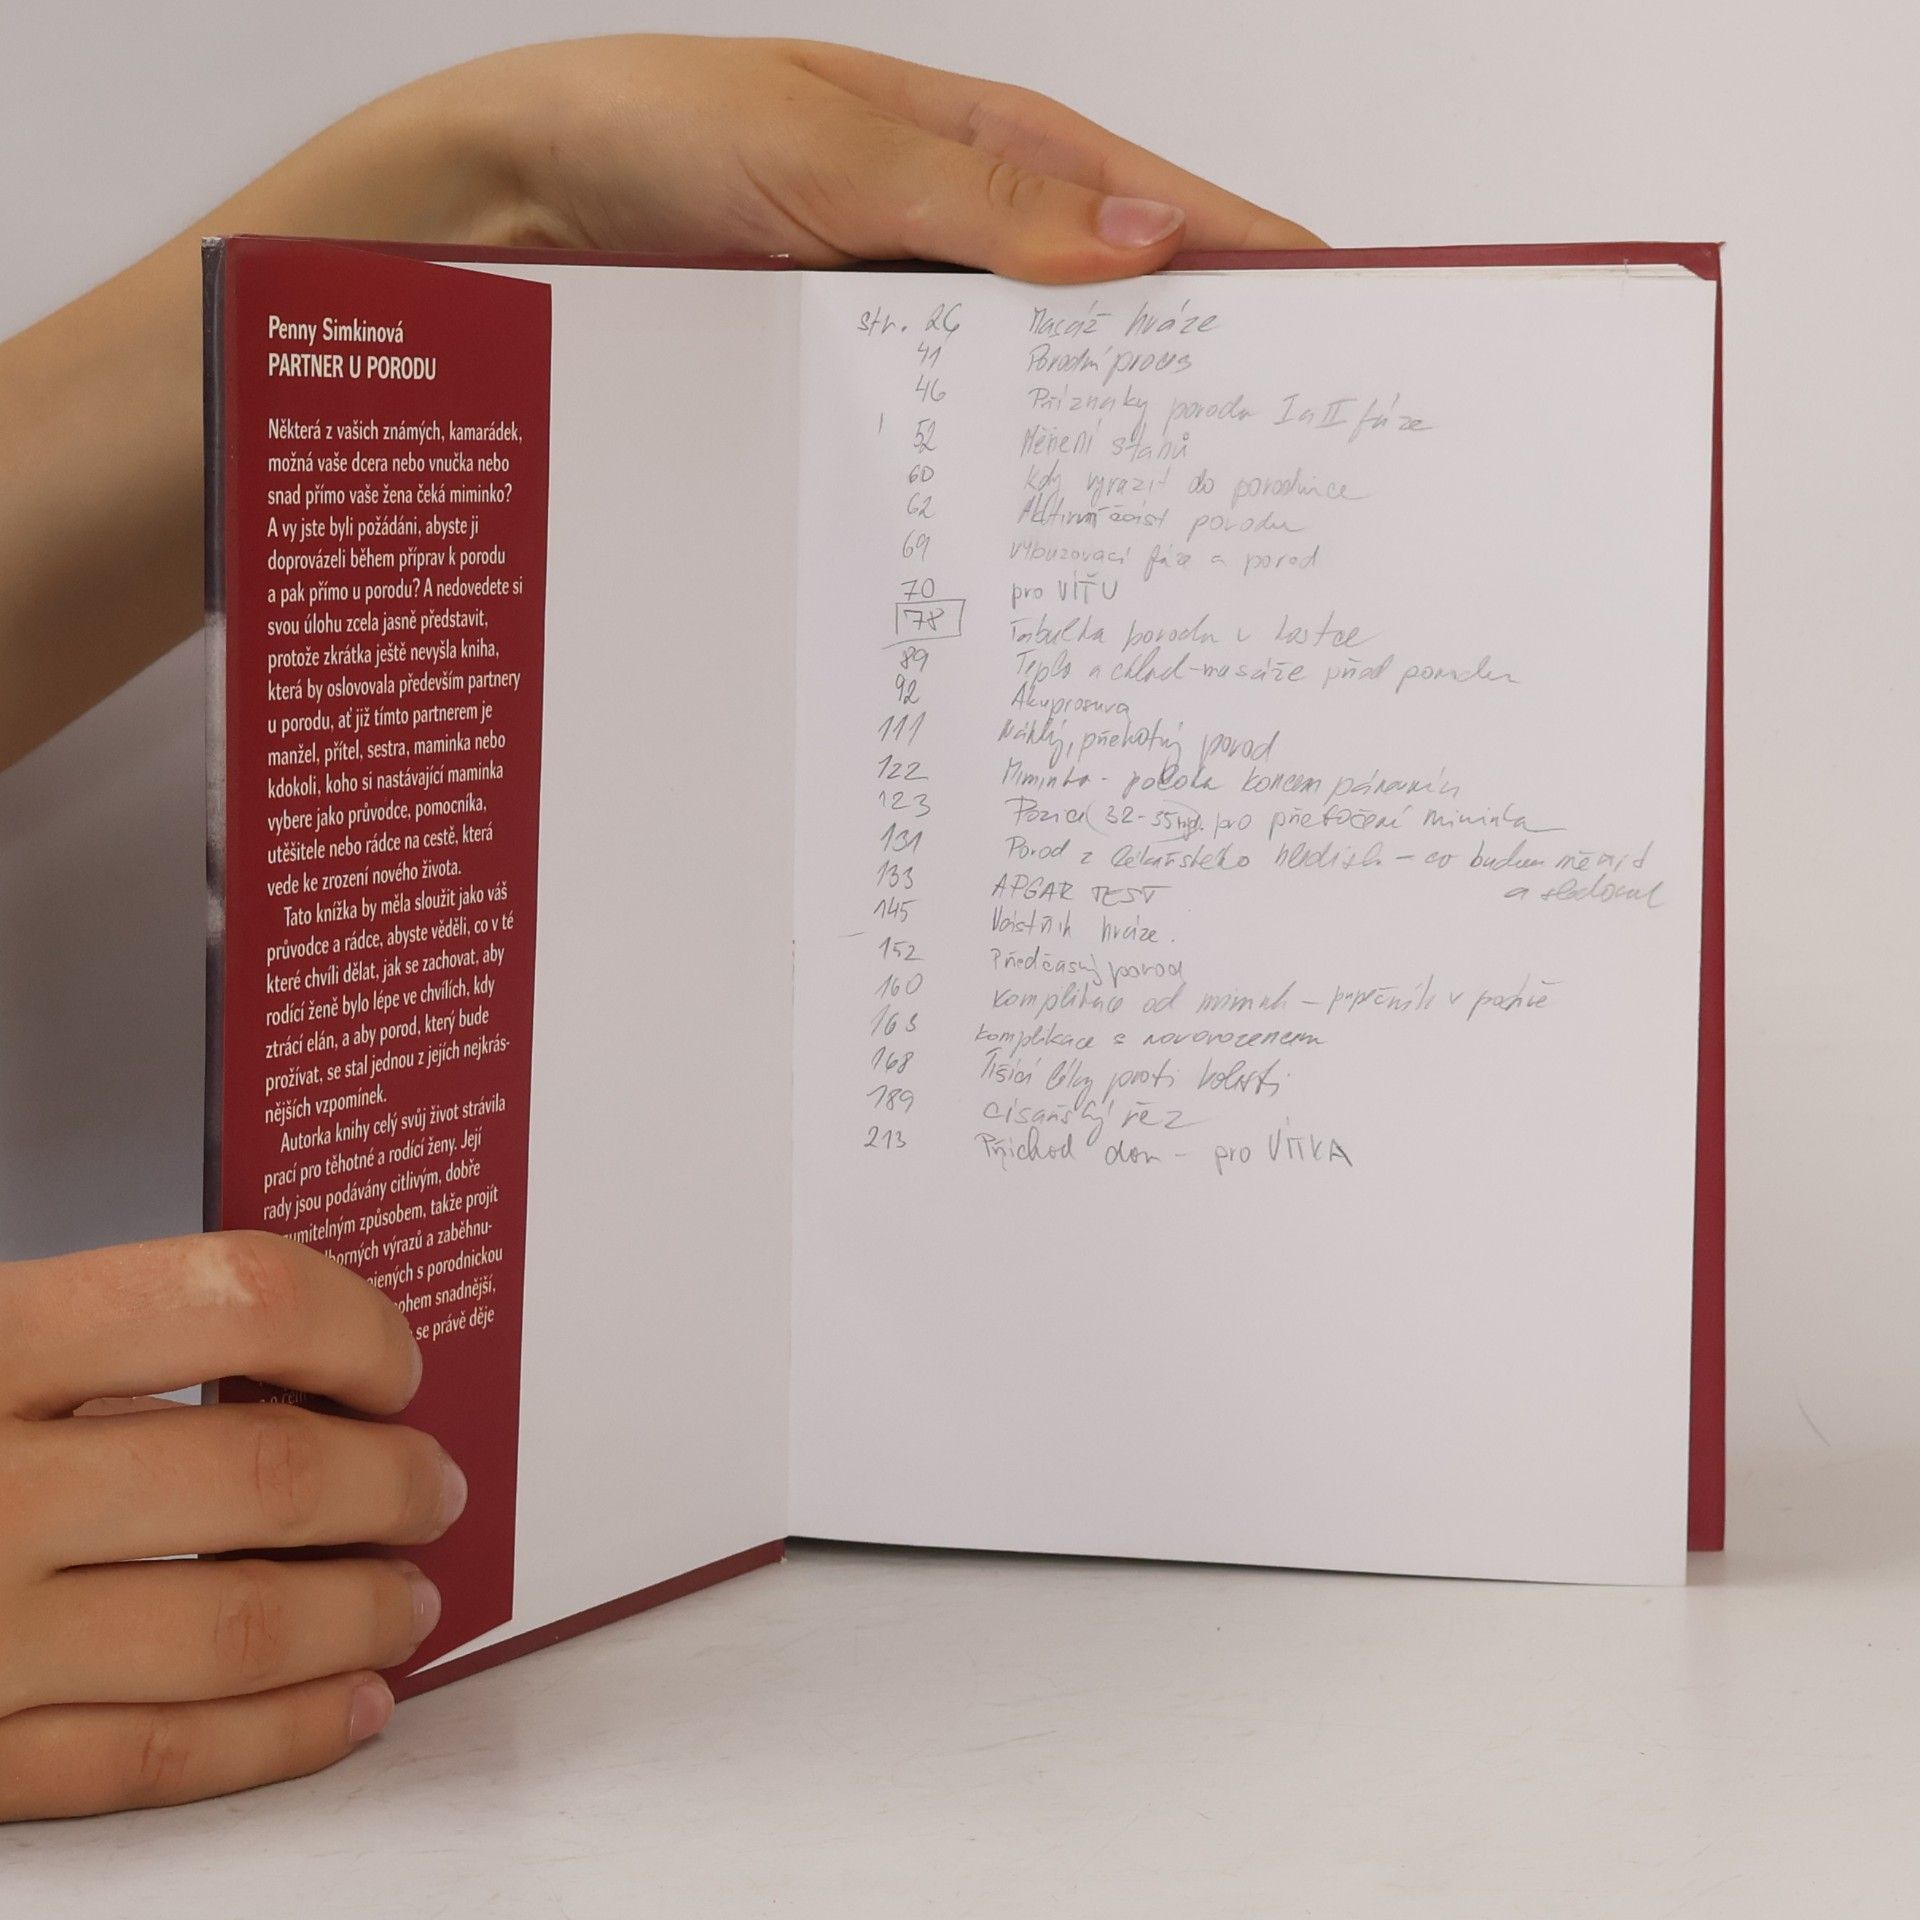 Penny Simkinová
PARTNER U PORODU
Některá z vašich známých, kamarádek,
možná vaše dcera nebo vnučka nebo
snad přímo vaše žena čeká miminko?
A vy jste byli požádáni, abyste ji
doprovázeli během příprav k porodu
a pak přímo u porodu? A nedovedete si
svou úlohu zcela jasně představit,
protože zkrátka ještě nevyšla kniha,
která by oslovovala především partnery
u porodu, ať již tímto partnerem je
manžel, přítel, sestra, maminka nebo
kdokoli, koho si nastávající maminka
vybere jako průvodce, pomocníka,
utěšitele nebo rádce na cestě, která
vede ke zrození nového života.
Tato knížka by měla sloužit jako váš
průvodce a rádce, abyste věděli, co v té
které chvíli dělat, jak se zachovat, aby
rodící ženě bylo lépe ve chvílích, kdy
ztrácí elán, a aby porod, který bude
prožívat, se stal jednou z jejích nejkrás-
nějších vzpomínek.
Autorka knihy celý svůj život strávila
prací pro těhotné a rodící ženy. Její
rady jsou podávány citlivým, dobře
umitelným způsobem, takže projít
borných výrazů a zaběhnu-
ojených s porodnickou
ohem snadnější,
se právě děje
str. 26 Masáž hráze
41 Porodní proces
46 Příznaky porodu I a II fáze
52 Měření stahů
60 Kdy vyrazit do porodnice
62 Aktivní část porodu
69 vybuzovací fáze a porod
70 pro VÍŤU
78 Tabulka porodu v kostce
89 Teplo a chlad - masáže před porodem
92 Akupresura
111 Náhlý, překotný porod
122 Miminko - poloha koncem
123 Pozice (32-35 týd.) pro přetočení miminka
131 Porod z lékařského hlediska - co budou měřit
a sledovat
133 APGAR TEST
145 Nástřih hráze.
152 Předčasný porod
160 Komplikace od mimink - pupečník v pochvě
163 Komplikace s novorozencem
168 Tišící léky proti bolesti
189 císařský řez
213 Příchod domů - pro VÍTKA